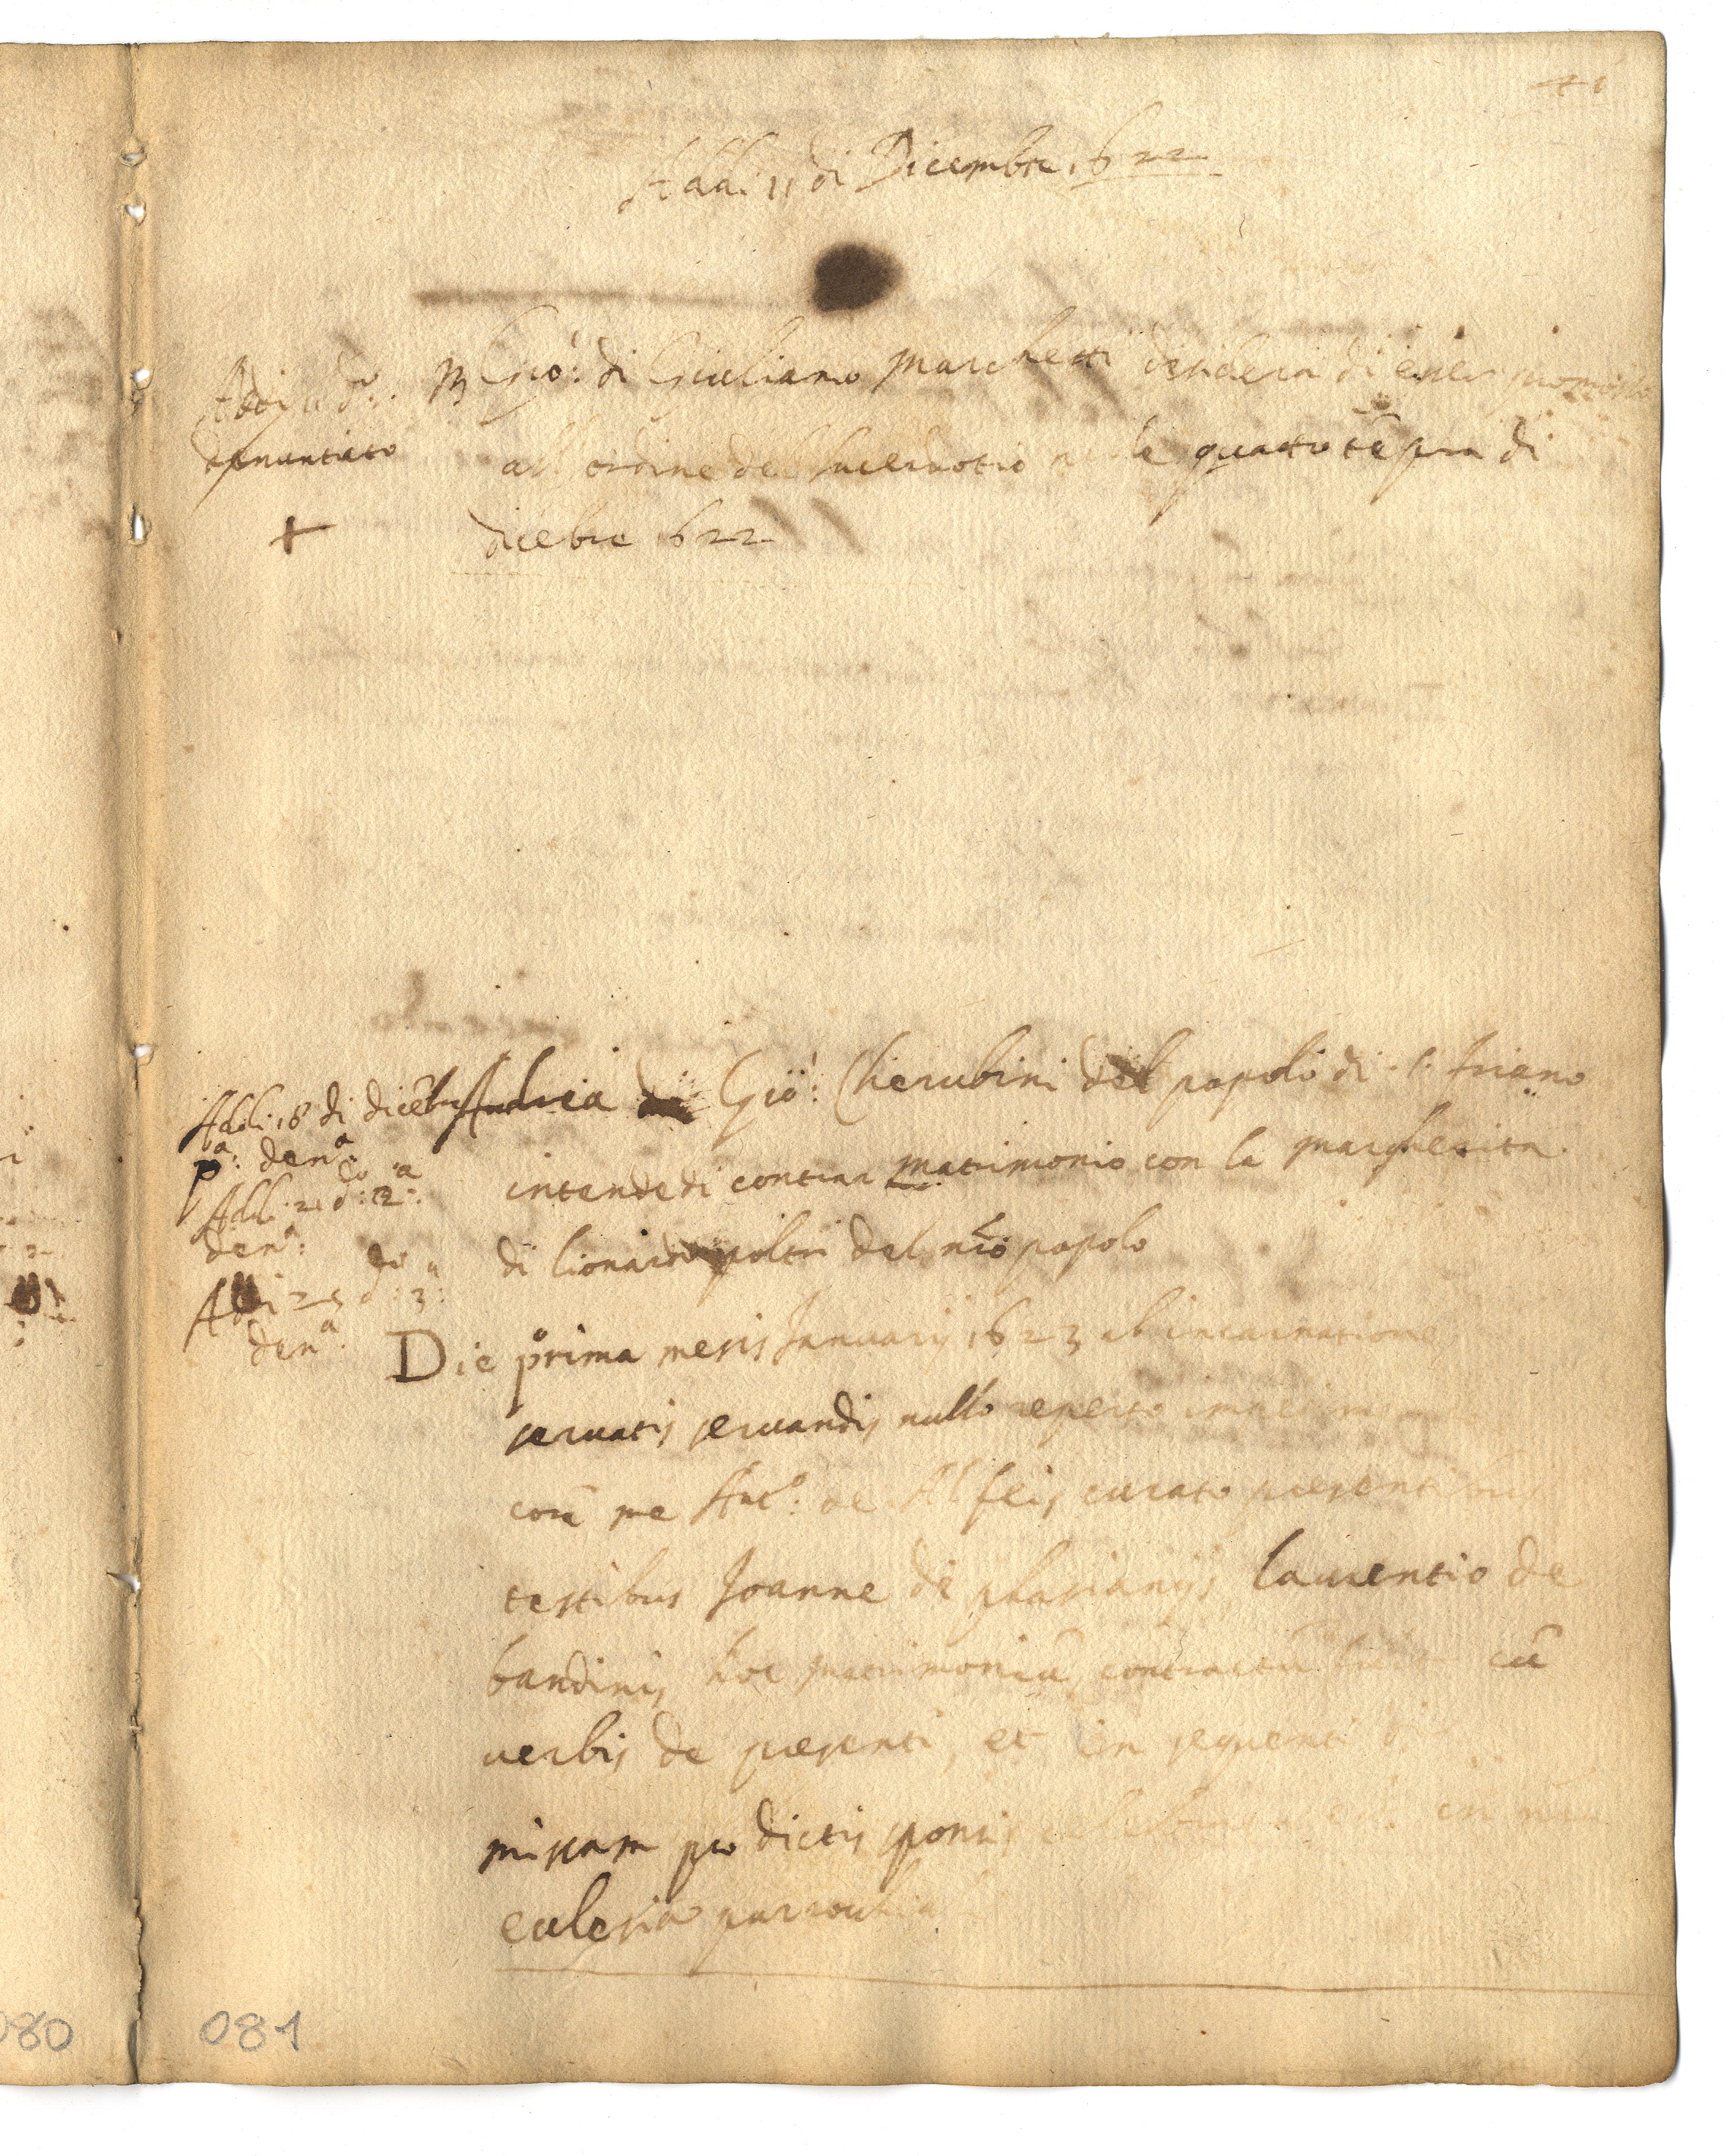 41
Addi 11 di Dicembre 1622
Addi 11 d.o
denuntiato
+
M Gio: di Giuliano Marchetti desidera di esser promosso
all ordine del sacerdotio nele quatro tēpora di
dicēbre 1622
Addi 18 di dicēbre
p.a: den.a
Addi 21 d.o: 2.a:
den.a:
Addi 25 d.o: 3.a:
den.a.
Andrea di Gio: Cherubini del popolo di S. friano
intende di contrar matrimonio con la margherita
di lionardo poltri del nr̄o popolo
Die prima mesis Januarij 1623 ab incarnatione
seruatis seruandis nullo reperto
corā me Ant.o: de Alfeis curato presentibus
testibus Joanne de laurentio de
bandinis hoc matrimoniū contractū cū
uerbis de presenti, et in sequenti
missam pro dictis sponsis in
eclesia
080
081